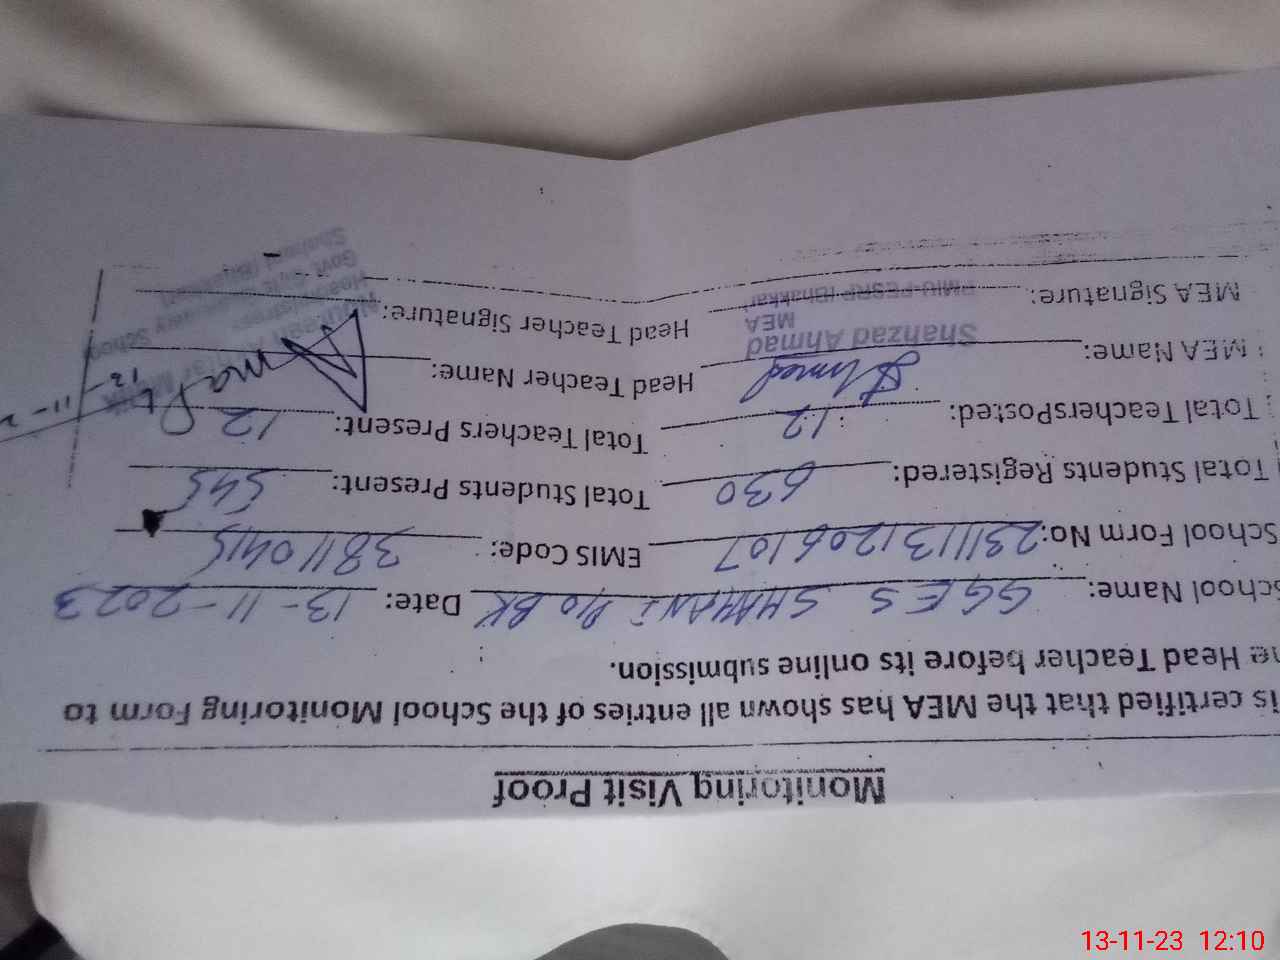 Monitoring Visit Proof
is certified that the MEA has shown all entries of the School Monitoring Form to
he Head Teacher before its online submission.
School Name: GGES SHAHANI P/O BK Date: 13-11-2023
School Form No: 2311131206107 EMIS Code: 38110415
Total Students Registered: 630 Total Students Present: 545
Total TeachersPosted: 12 Total Teachers Present: 12
MEA Name: Head Teacher Name:
Shahzad Ahmad
MEA
PMIU-PESRP (Bhakkar)
MEA Signature: Head Teacher Signature:
13-11-23 12:10